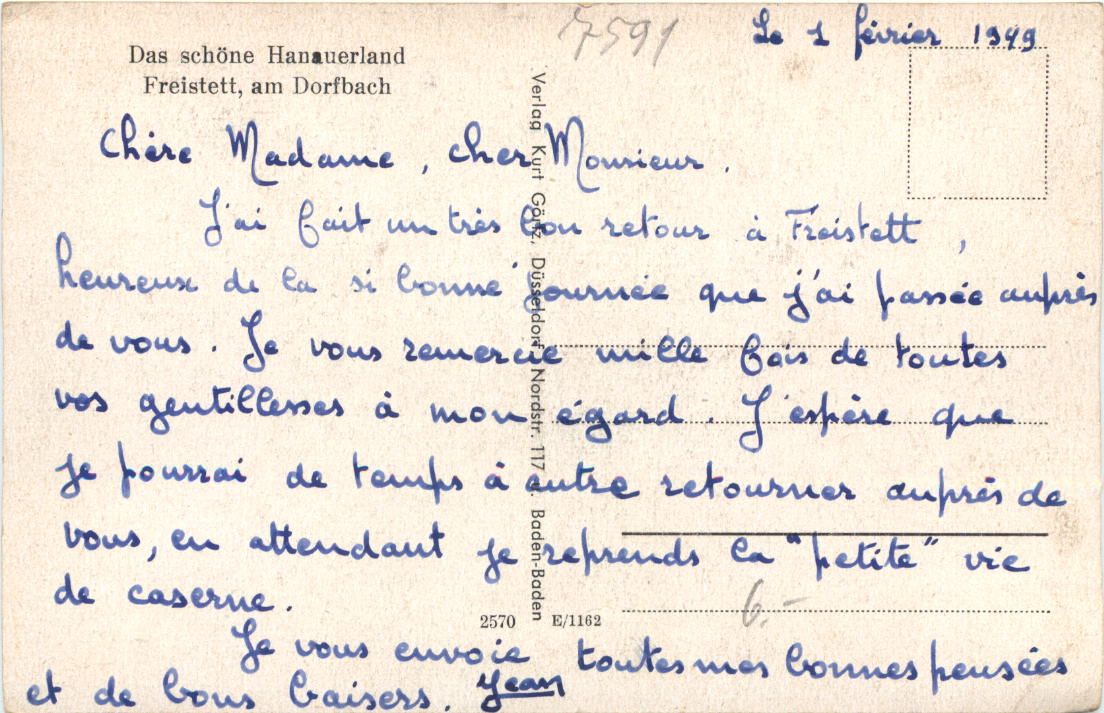 7591
Le 1 février 1949
Das schöne Hanauerland
Freistett, am Dorfbach
Chère Madame, cher Monsieur.
J'ai fait un très bon retour à Freistett,
heureux de la si bonne journée que j'ai passée auprès
de vous. Je vous remercie mille fois de toutes
vos gentillesses à mon égard. J'espère que
je pourrai de temps à autre retourner auprès de
vous, en attendant je reprends la "petite" vie
de caserne.
Je vous envoie toutes mes bonnes pensées
et de bons baisers. Jean
Verlag Kurt Görtz, Düsseldorf, Nordstr. 117 u. Baden-Baden
2570 E/1162
6.-